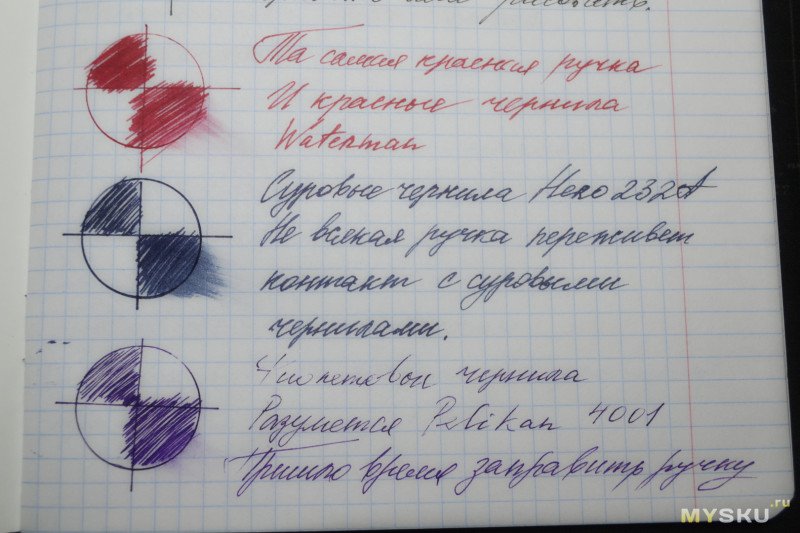 рисовать.
Та самая красная ручка
И красные чернила
Waterman
Суровые чернила Hero 232
Не всякая ручка переживет
контакт с суровыми
чернилами.
чернила
Разумется Pelikan 4001
Пришло время заправить ручку
MYSKU.ru